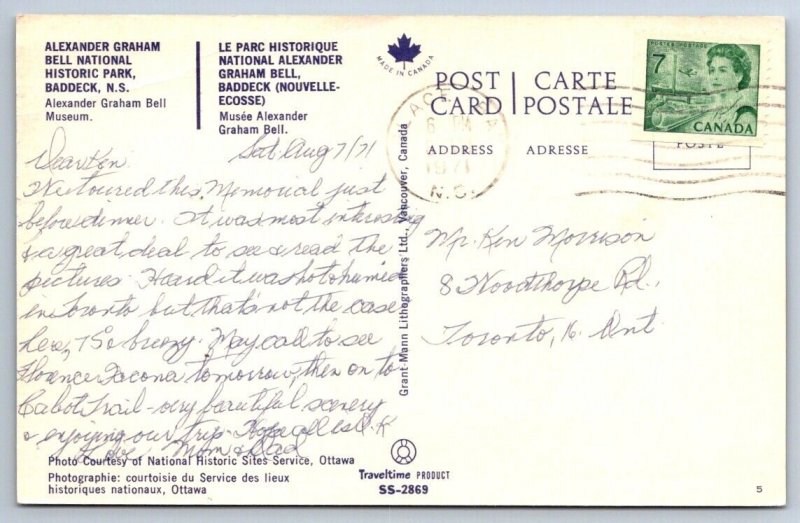 ALEXANDER GRAHAM
BELL NATIONAL
HISTORIC PARK,
BADDECK, N.S.
Alexander Graham Bell
Museum.
LE PARC HISTORIQUE
NATIONAL ALEXANDER
GRAHAM BELL,
BADDECK (NOUVELLE-
ECOSSE)
Musée Alexander
Graham Bell.
MADE IN CANADA
POST CARD
CARTE POSTALE
ADDRESS
ADRESSE
POSTES POSTAGE
7
CANADA
POSTE
PM
1971
N.S.
Sat. Aug 7/71
Dear Ken
We toured this Memorial just
before dinner. It was most interesting
& a great deal to see & read the
pictures. Heard it was hot & humid
in Toronto but that's not the case
here, 75 & breezy. May call to see
Florence tomorrow, then on to
Cabot Trail - very beautiful scenery
& enjoying our trip. Hope all is O.K
Love Mom & Dad
Mr. Ken Morrison
8 Noorthorpe Rd.,
Toronto, 16. Ont.
Grant-Mann Lithographers Ltd., Vancouver, Canada
Photo Courtesy of National Historic Sites Service, Ottawa
Photographie: courtoisie du Service des lieux
historiques nationaux, Ottawa
Traveltime PRODUCT
SS-2869
5